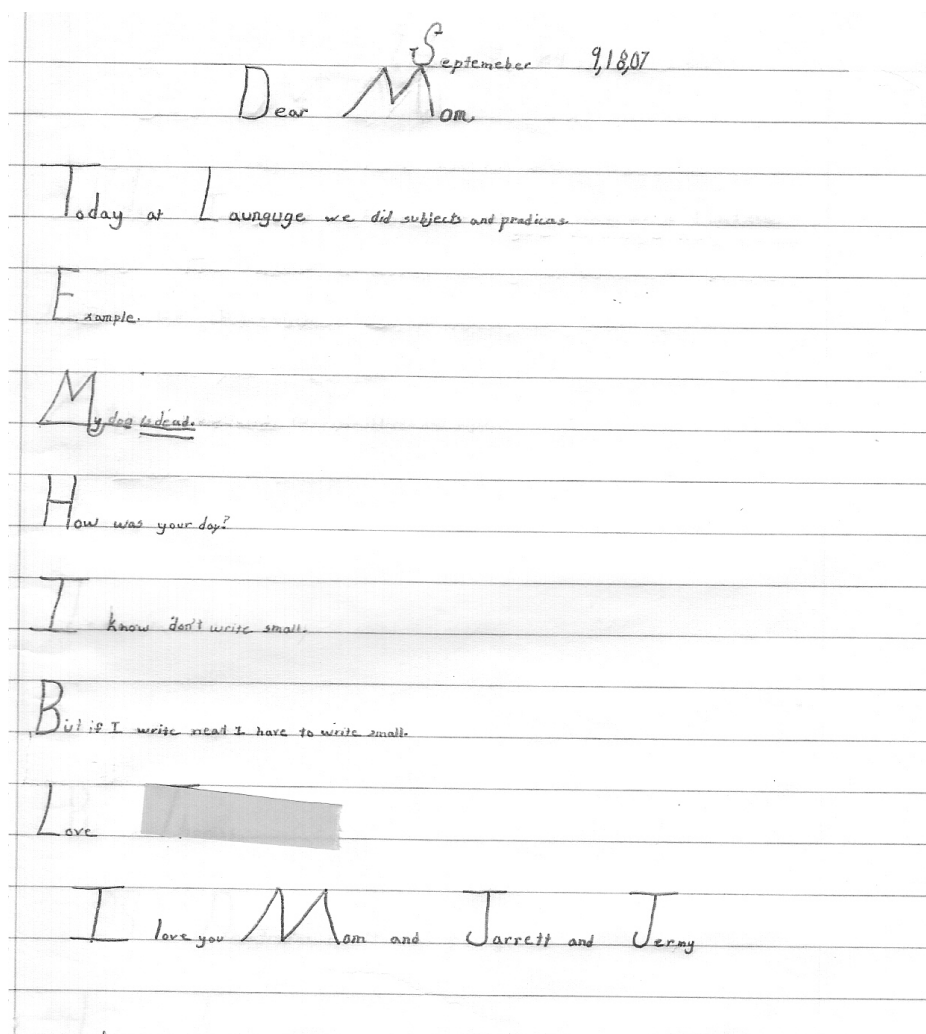 Septemeber 9,18,07
Dear Mom
Today at Launguge we did subjects and pradicas.
Example.
My dog is dead.
How was your day?
I know don't write small.
But if I write nead I have to write small.
Love
I love you Mom and Jarrett and Jermy